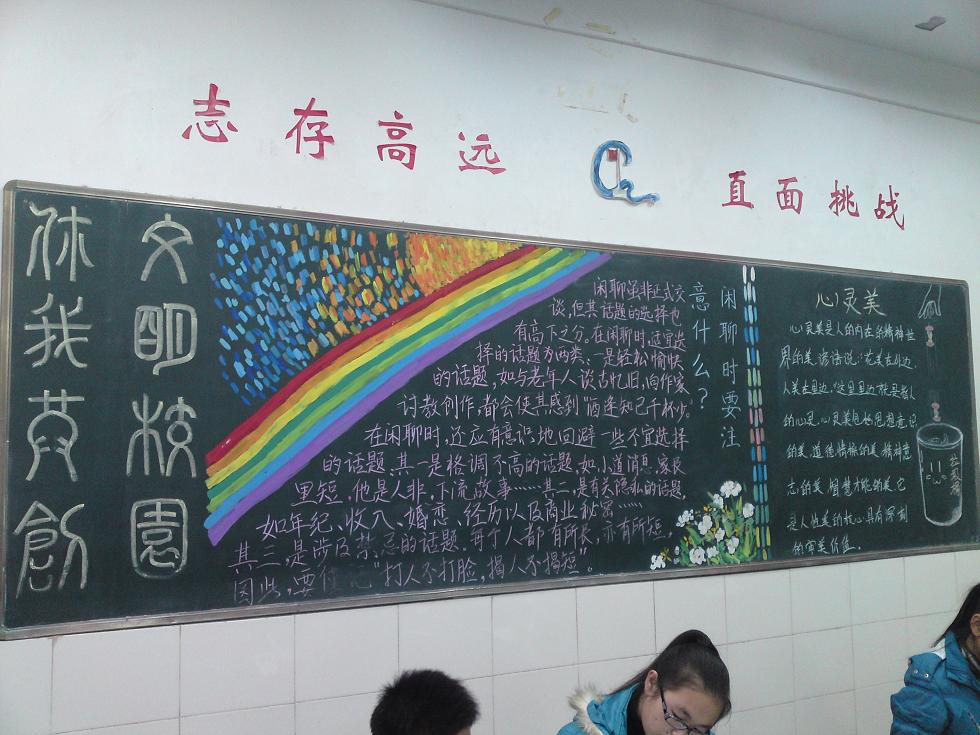 志存高远
直面挑战
文明校园
你我共創
闲聊时要注
意什么？
闲聊虽非正式交
谈，但其话题的选择也
有高下之分。在闲聊时，适宜选
择的话题为两类，一是轻松愉快
的话题，如与老年人谈古忆旧，向作家
讨教创作，都会使其感到"酒逢知己千杯少"。
在闲聊时，还应有意识地回避一些不宜选择
的话题。其一是格调不高的话题，如小道消息、家长
里短，他是人非，下流故事……其二，是有关隐私的话题，
如年纪、收入、婚恋、经历以及商业秘密……
其三，是涉及禁忌的话题。每个人都有所长，亦有所短，
因此，要 记"打人不打脸，揭人不揭短"。
心灵美
心灵美是人的内在的精神世
界的美，谚语说："花美在外边，
人美在里边，"这里里边"就是指人
的心灵，心灵美包括思想意识
的美，道德情操的美，精神意
志的美，智慧才能的美，它
是人性美的核心，具有深刻
的审美价值。